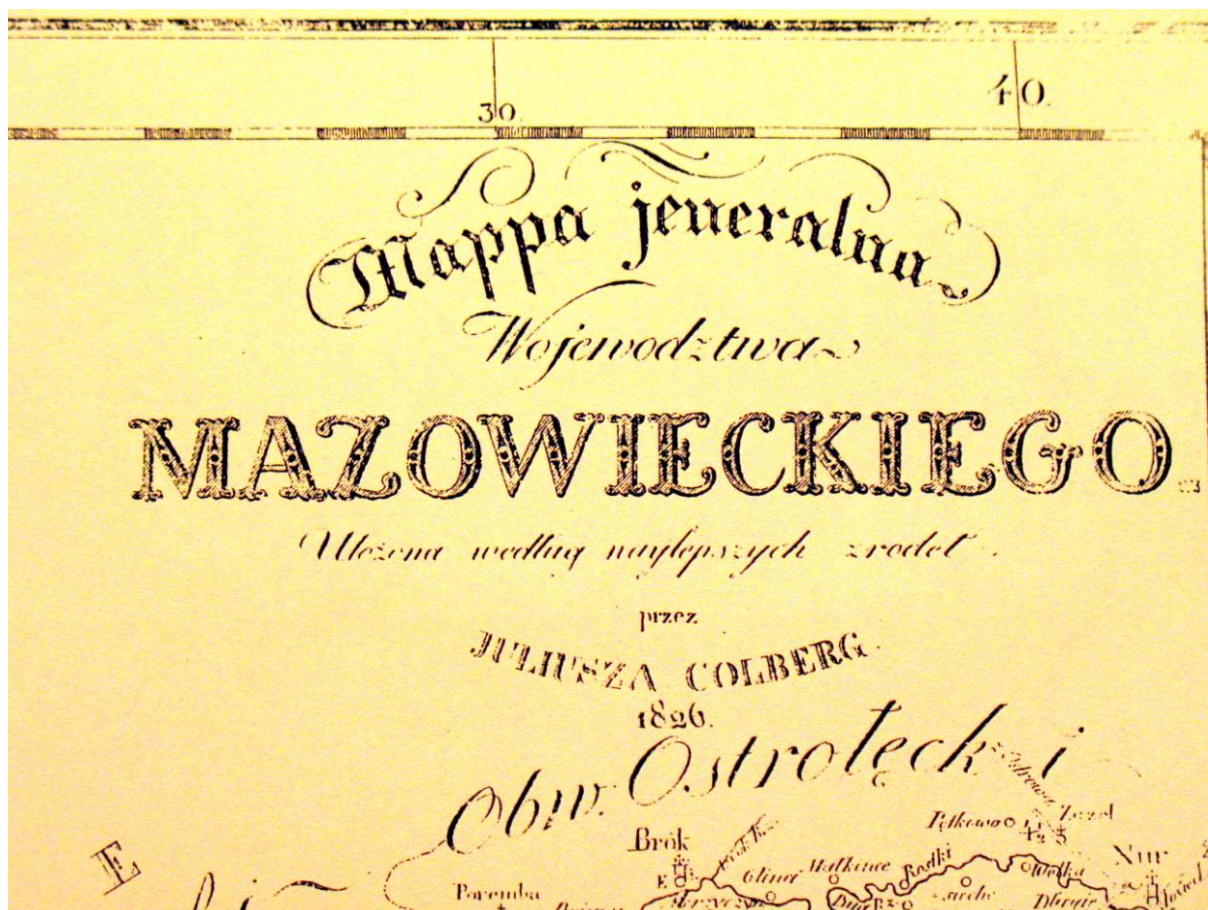 30. 40.
Mappa jeneralna
Wojewodztwa
MAZOWIECKIEGO.
Ulożona według naylepszych zrodeł.
przez
JULIUSZA COLBERG.
1826.
Obw. Ostrołęcki
Pętkowo
Brók Nur
Glina Małkinie Rostki Wólka
E Poremba